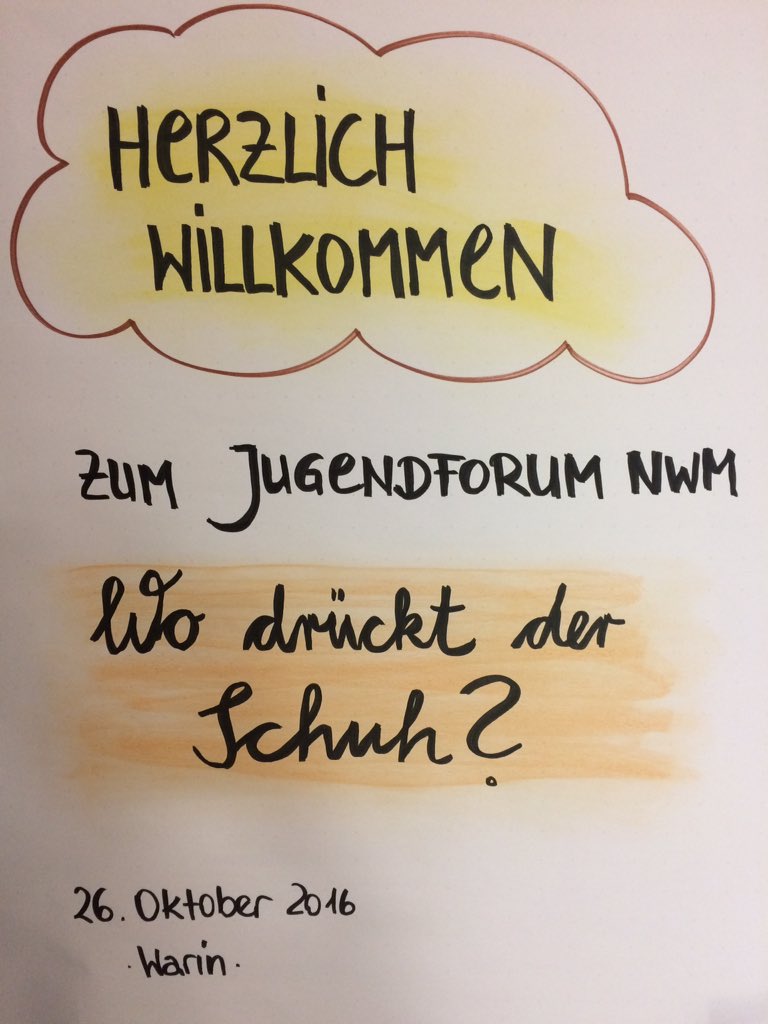 HERZLICH
WILLKOMMEN
ZUM JUGENDFORUM NWM
Wo drückt der
Schuh?
26. Oktober 2016
· Warin ·